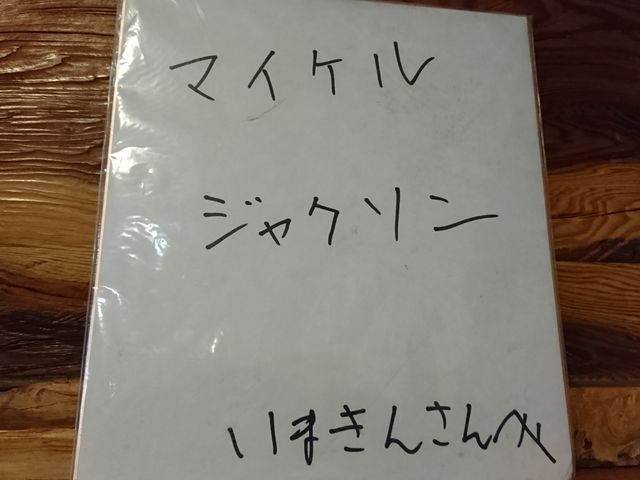 マイケル
ジャクソン
いまきんさんへ